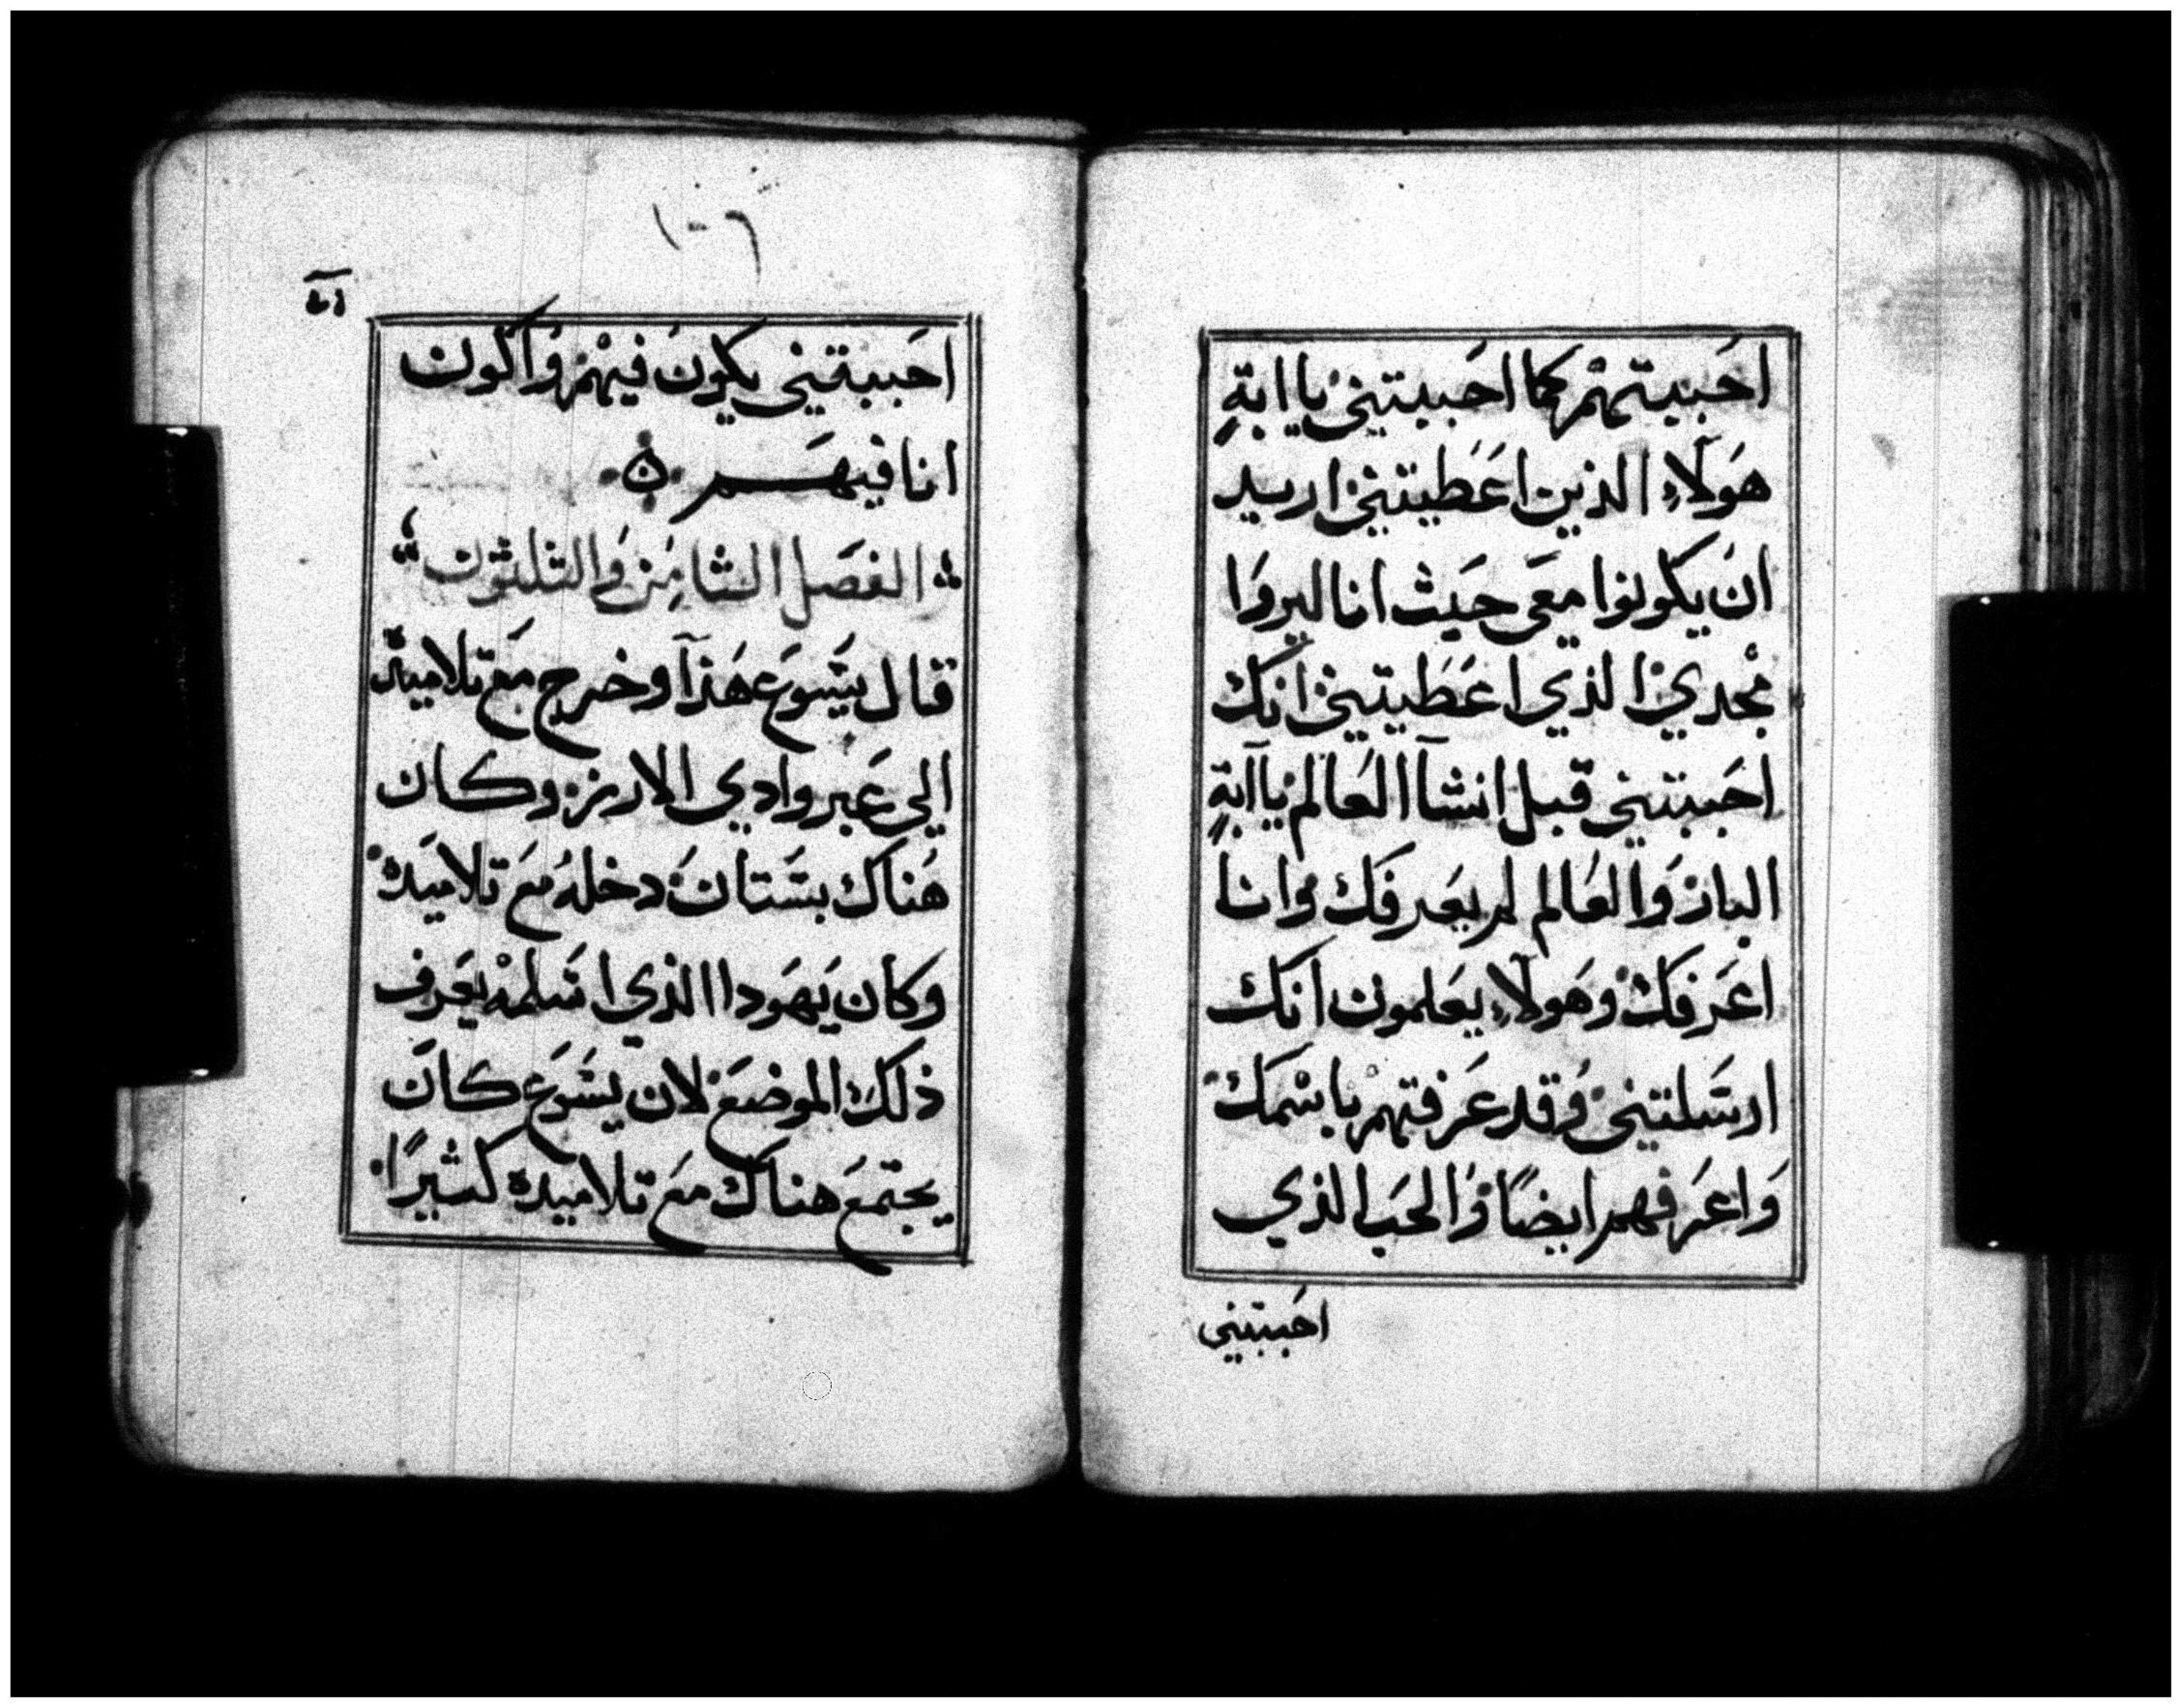 احَببيتهمْ كما احَببيتني يا ابةِ
هَولآءِ الذين اعَطيتني اريد
انَ يكونوا معَي حَيث انا ليروَا
مجْدي الذي اعَطيتني انَك
احَببتني قبل انشآ العَالم ياآبةِ
البار وَالعَالم لم يعَرفَك وانا
اعَرفكَ وهَولآءِ يعَلمون انَك
ارسَلتني وَقد عَرفتهمْ باسْمَك
وَاعَرفهم ايضًا وَالحَب الذي
احَببتني
١٠٦
احَببتني يكونَ فيهْم وَاكَون
انا فيهَم
الفصَل الثامِن وَالثلثون
قال يسَوعَ هَذآ وخرج معَ تلاميذه
الي عَبر وادي الارز وكان
هَناك بسَتانَ دخلهُ معَ تلاميده
وكان يَهوَدا الذي اسَلمْه يعَرف
ذلكَ الموضعَ لان يسَوعَ كانَ
يجتمعَ هناك معَ تلاميده كثيرًا